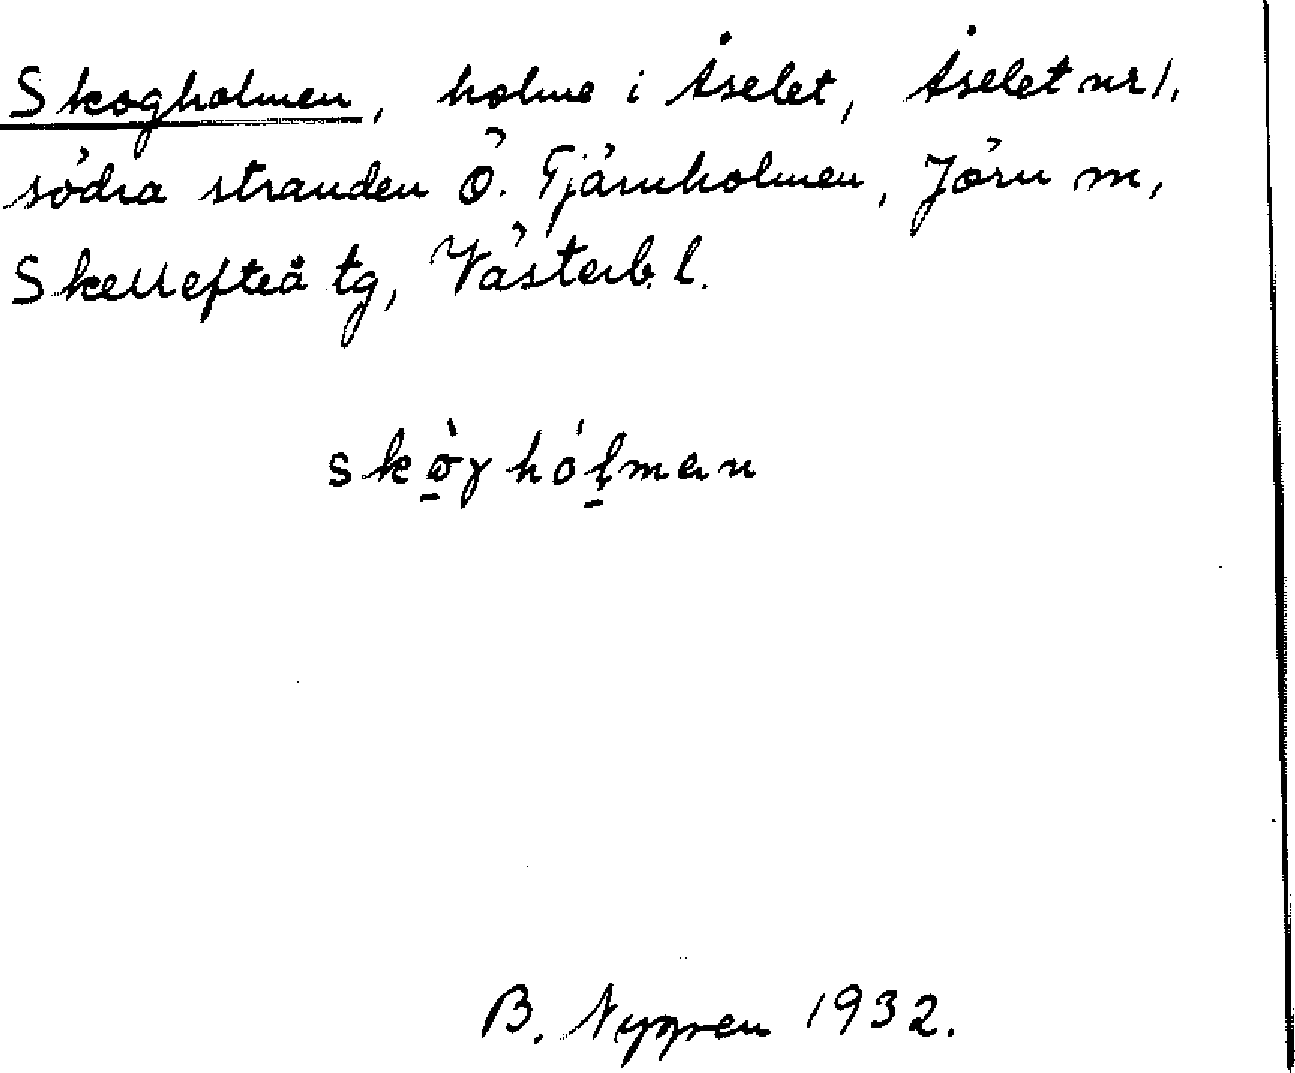 Skogholmen, holme i Åselet, Åselet nr 1,
södra stranden Ö. Tjärnholmen, Jörn sn,
Skellefteå tg, Västerb. l.
skò̱γhóḻman
B. Nygren 1932.